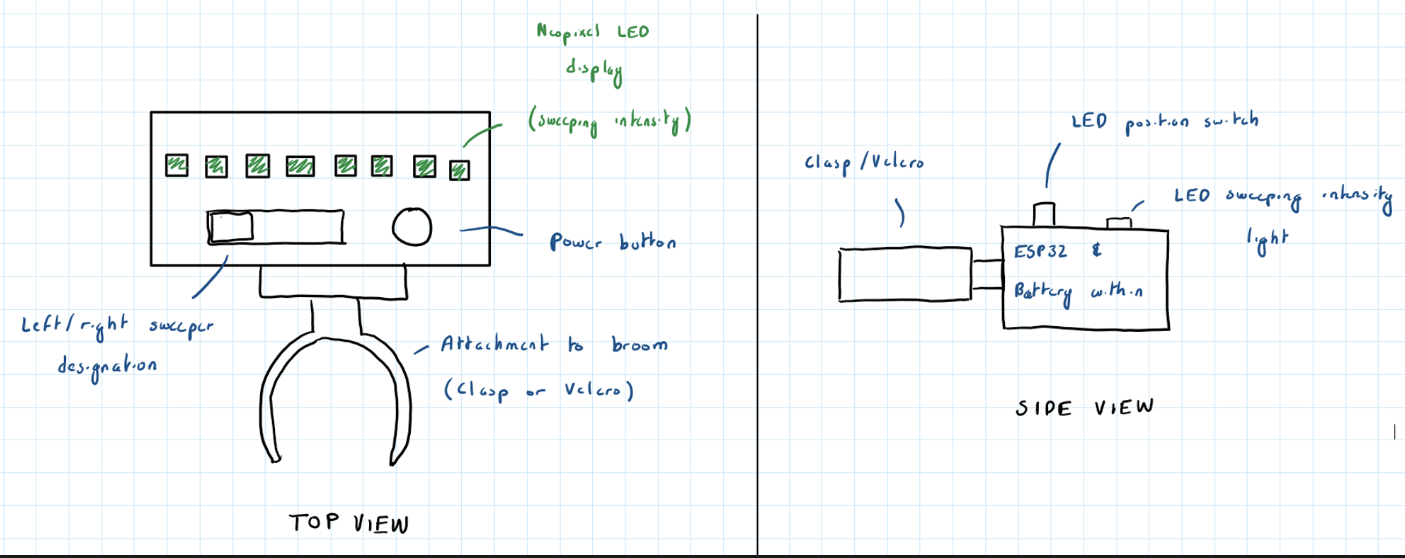 Neopixel LED
display
(sweeping intensity)
Power button
Left/right sweeper
designation
Attachment to broom
(Clasp or Velcro)
TOP VIEW
LED position switch
Clasp/Velcro
LED sweeping intensity
light
ESP32 &
Battery within
SIDE VIEW